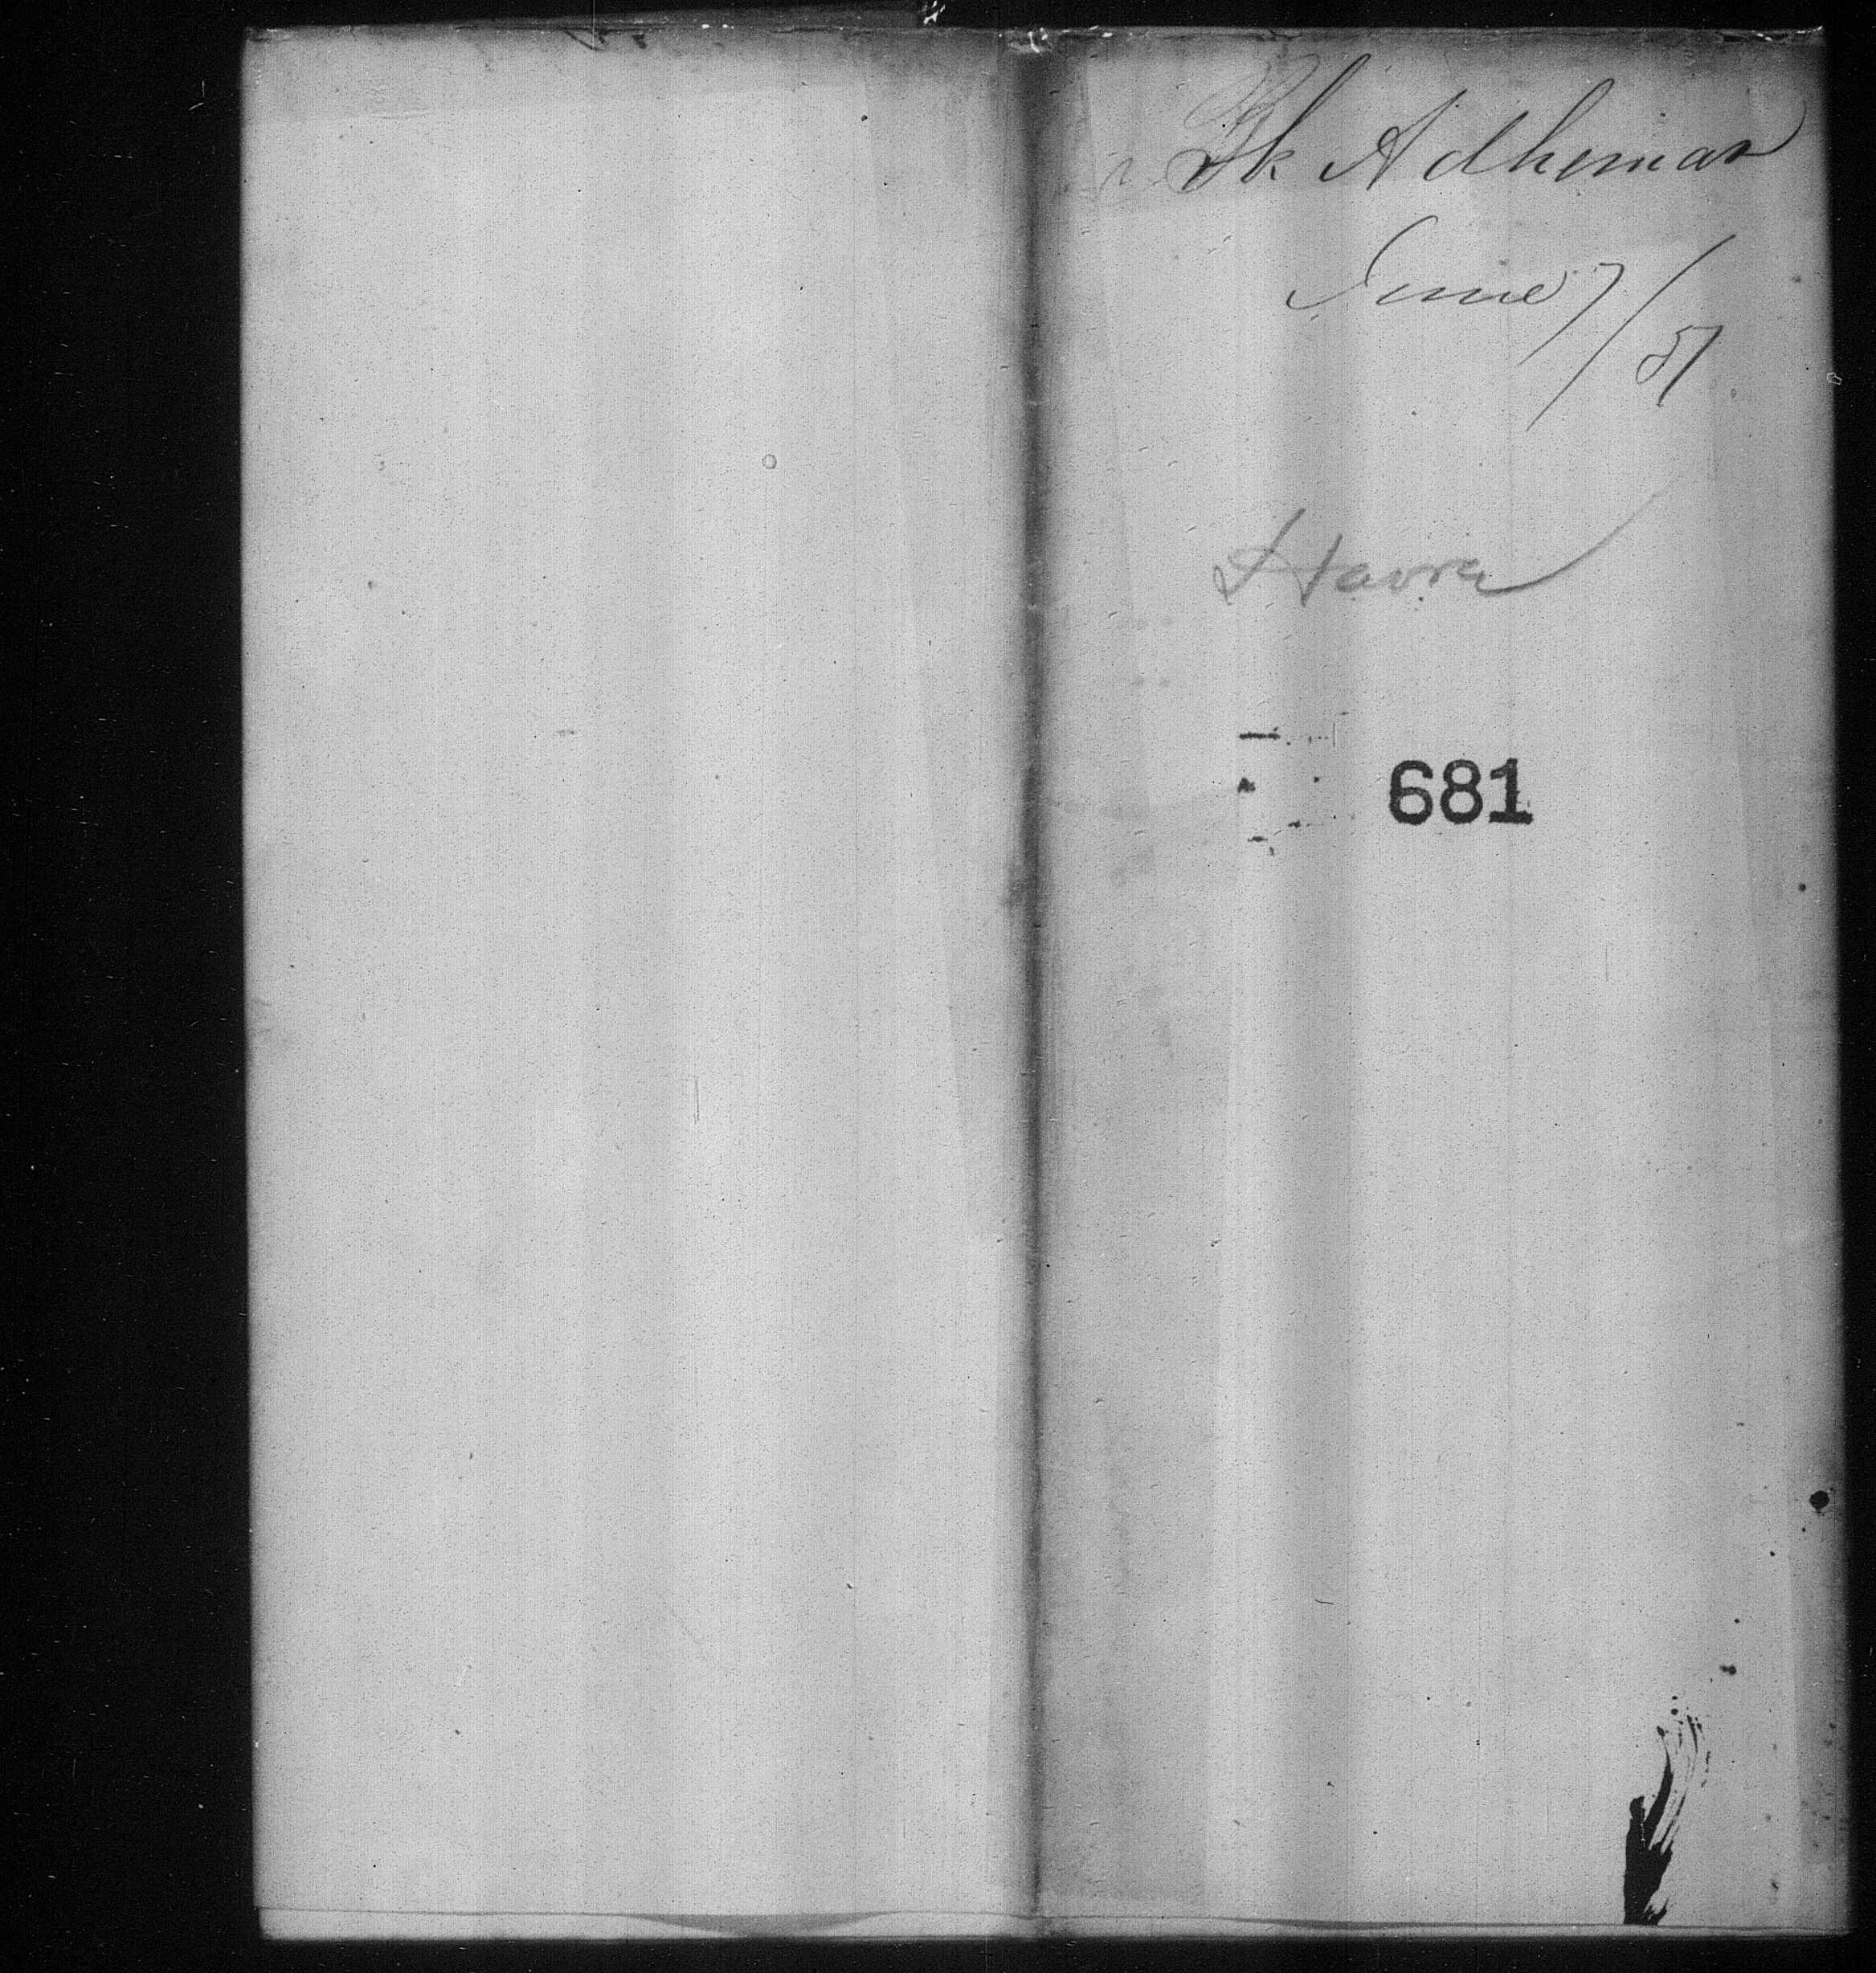 Bk Adhemar
June 7/51
Havre
681